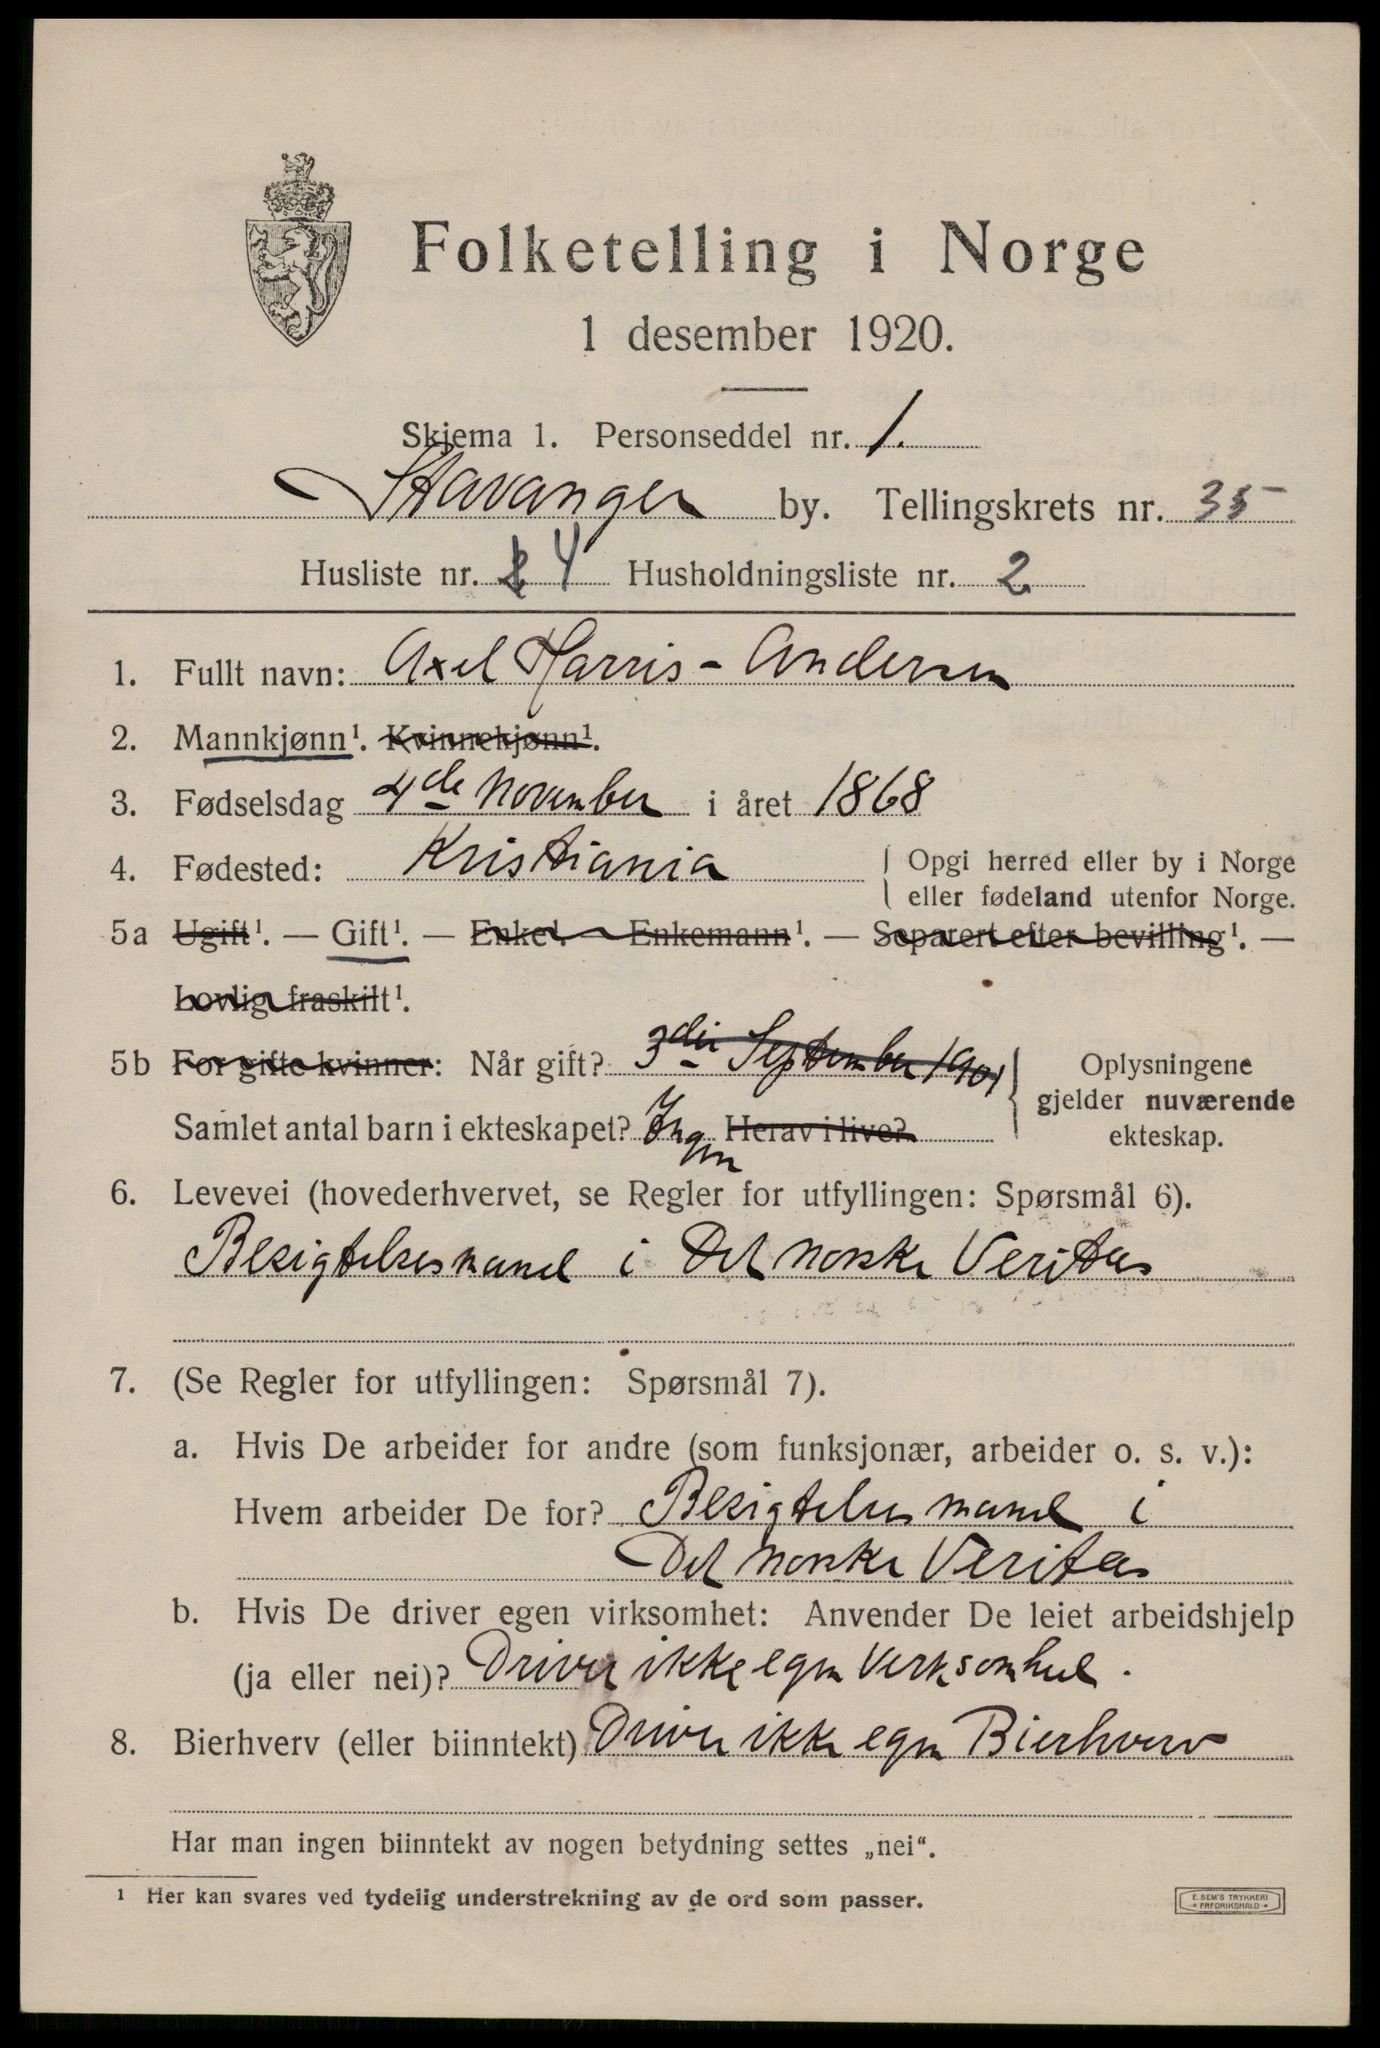 Folketelling i Norge
1 desember 1920.
Skjema 1. Personseddel nr. 1.
Stavanger by. Tellingskrets nr. 35
Husliste nr. 4 Husholdningsliste nr. 2
1. Fullt navn: Axel Harris - Andersen
2. Mannkjønn¹. Kvinnekjønn¹.
3. Fødselsdag 4de November i året 1868
4. Fødested: Kristiania
Opgi herred eller by i Norge
eller fødeland utenfor Norge.
5a Ugift¹. — Gift¹. — Enke¹. — Enkemann¹. — Separert efter bevilling¹. —
Lovlig fraskilt¹.
5b For gifte kvinner: Når gift? 3die September 1901
Samlet antal barn i ekteskapet? Ingen Herav i live?
Oplysningene
gjelder nuværende
ekteskap.
6. Levevei (hovederhvervet, se Regler for utfyllingen: Spørsmål 6).
Besigtelsesmand i Det norske Veritas
7. (Se Regler for utfyllingen: Spørsmål 7).
a. Hvis De arbeider for andre (som funksjonær, arbeider o. s. v.):
Hvem arbeider De for? Besigtelsesmand i
Det norske Veritas
b. Hvis De driver egen virksomhet: Anvender De leiet arbeidshjelp
(ja eller nei)? Driver ikke egen Virksomhed.
8. Bierhverv (eller biinntekt) Driver ikke egen Bierhverv
Har man ingen biinntekt av nogen betydning settes „nei“.
¹ Her kan svares ved tydelig understrekning av de ord som passer.
E. SEM'S TRYKKERI
FREDRIKSHALD